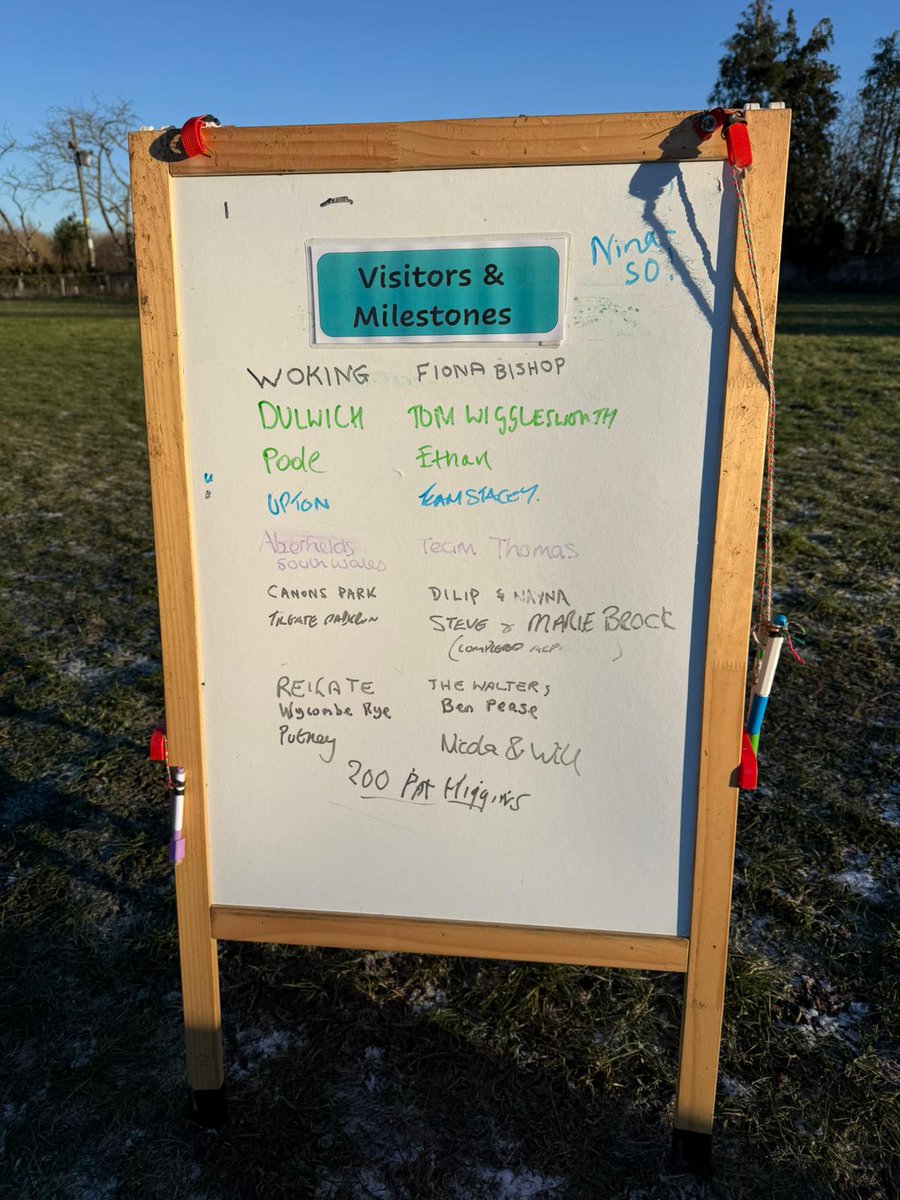 Visitors &
Milestones
Nina
50.
WOKING FIONA BISHOP
DULWICH TOM WIGGLESWORTH
Poole Ethan
UPTON TEAM STACEY.
Aberfields Team Thomas
South Wales
CANONS PARK DILIP & NAYNA
TILGATE PARKRUN STEVE & MARIE BROCK
(COMPLETED )
REIGATE THE WALTERS
Wycombe Rye Ben Pease
Putney Nicola & Will
200 Pat Higgins